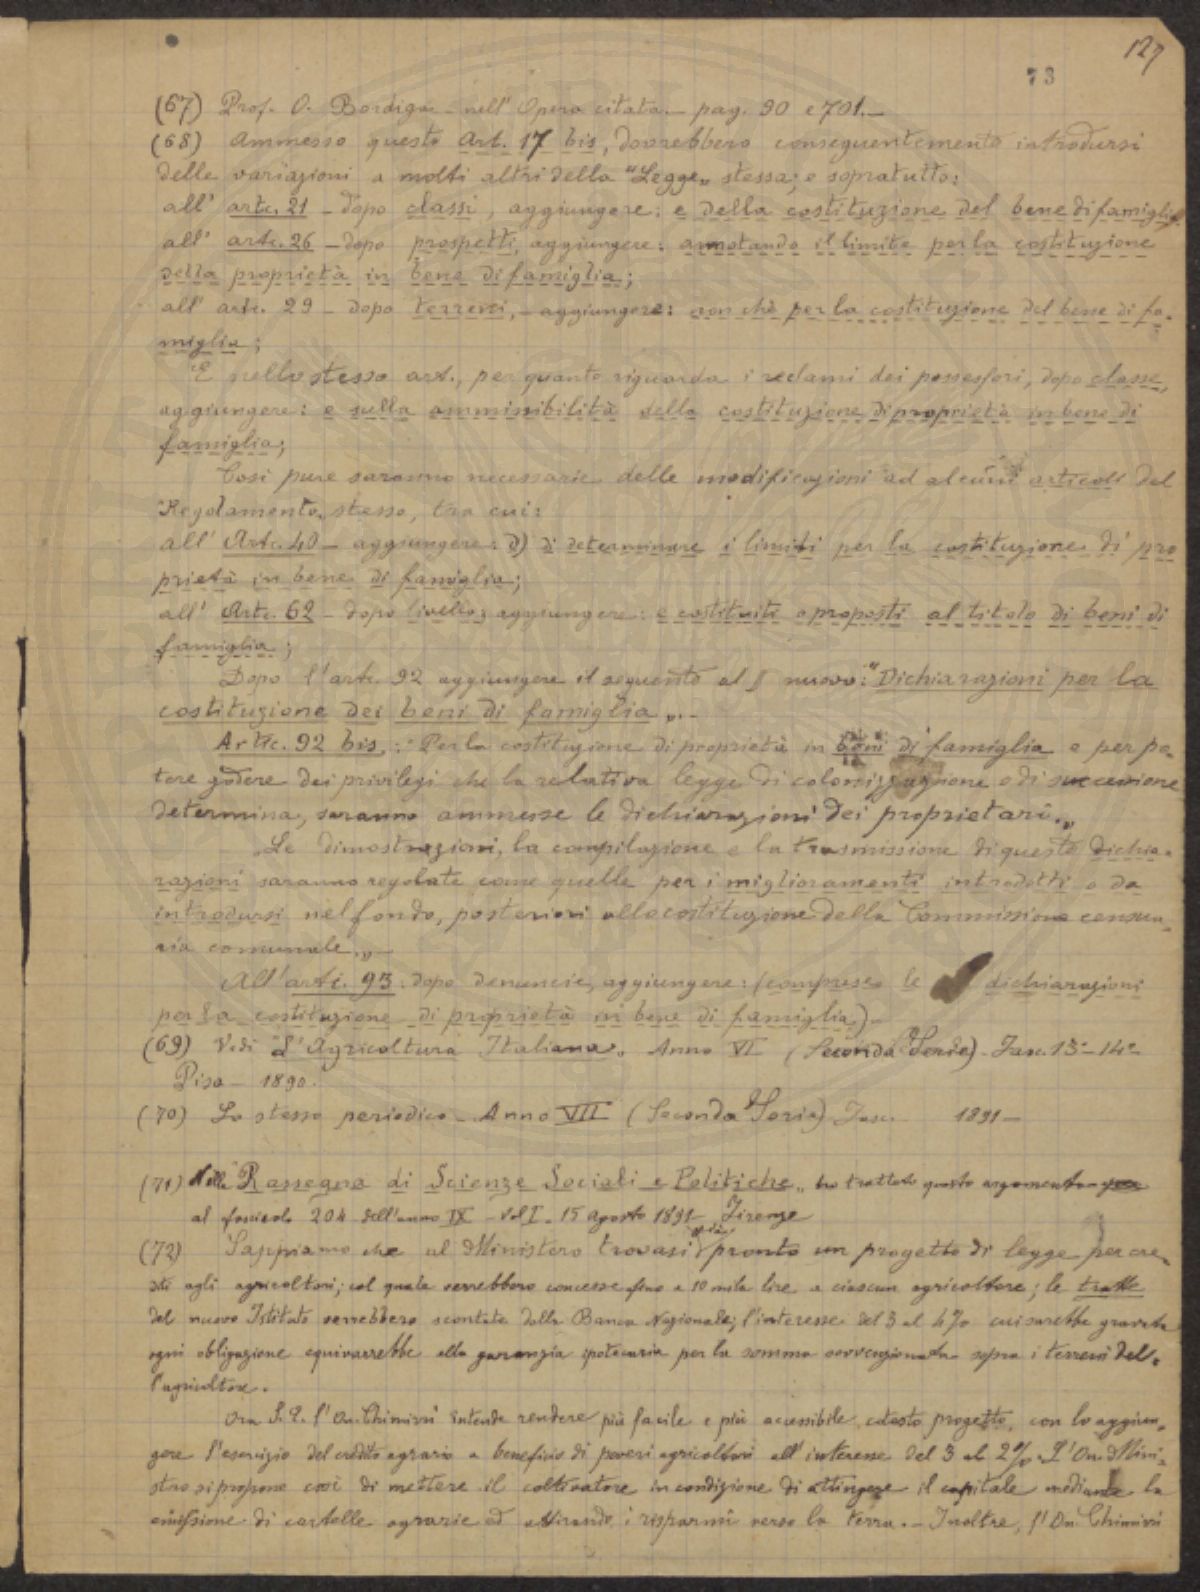 127
73
(67) Prof. O. Bordiga - nell' Opera citata. - pag. 90 e 701. -
(68) Ammesso questo Art. 17 bis, dovrebbero conseguentemente introdursi
delle variazioni a molti altri della "Legge„ stessa; e sopratutto:
all' artc. 21 - Dopo classi, aggiungere: e della costituzione del bene di famiglia
all' artc. 26 - dopo prospetti, aggiungere: annotando il limite per la costituzione
della proprietà in bene di famiglia;
all' artc. 29 - dopo terreni, - aggiungere: non chè per la costituzione del bene di fa-
miglia;
E nello stesso art., per quanto riguarda i reclami dei possessori, dopo classe,
aggiungere: e sulla ammissibilità della costituzione di proprietà in bene di
famiglia;
Così pure saranno necessarie delle modificazioni ad alcuni articoli del
Regolamento, stesso, tra cui:
all' Artc. 40 - aggiungere: d) di determinare i limiti per la costituzione di pro
prietà in bene di famiglia;
all' Artc. 62 - dopo livello; aggiungere: e costituiti o proposti al titolo di beni di
famiglia;
Dopo l'artc. 92 aggiungere il seguente al § nuovo: "Dichiarazioni per la
costituzione dei beni di famiglia„. -
Artic. 92 bis.: "Per la costituzione di proprietà in beni di famiglia e per po-
tere godere dei privilegi che la relativa legge di colonizzazione o di successione
determina, saranno ammesse le dichiarazioni dei proprietari.„
"Le dimostrazioni, la compilazione e la trasmissione di queste dichia-
razioni saranno regolate come quelle per i miglioramenti introdotti o da
introdursi nel fondo, posteriori alla costituzione della Commissione censua-
ria comunale.„ -
All' artc. 93: dopo denuncie, aggiungere: (comprese le dichiarazioni
per la costituzione di proprietà in bene di famiglia.) -
(69) Vedi L'Agricoltura Italiana. Anno VI (Seconda Serie) - Fasc. 13 - 14 -
Pisa - 1890.
(70) Lo stesso periodico - Anno VII (Seconda Serie) Fasc. 1891 -
(71) Nella "Rassegna di Scienze Sociali e Politiche„ ho trattato questo argomento
al fascicolo 204 dell'anno IX - Vol I. - 15 agosto 1891 - Firenze
(72) Sappiamo che al Ministero trovasi già pronto un progetto di legge per cre-
diti agli agricoltori; col quale verrebbero concesse fino a 10 mila lire a ciascun agricoltore; le tratte
del nuovo Istituto verrebbero scontate dalla Banca Nazionale; l'interesse del 3 al 4% cui sarebbe gravata
ogni obligazione equivarrebbe alla garanzia ipotecaria per la somma sovvenzionata sopra i terreni del-
l'agricoltore.
Ora S. E. l'On. Chimirri intende rendere più facile e più accessibile cotesto progetto, con lo aggiun-
gere l'esercizio del credito agrario a beneficio di poveri agricoltori all'interesse del 3 al 2% - L'On. Mini-
stro si propone così di mettere il coltivatore in condizione di attingere il capitale mediante la
emissione di cartelle agrarie ed attirando i risparmi verso la terra. - Inoltre, l'On. Chimirri